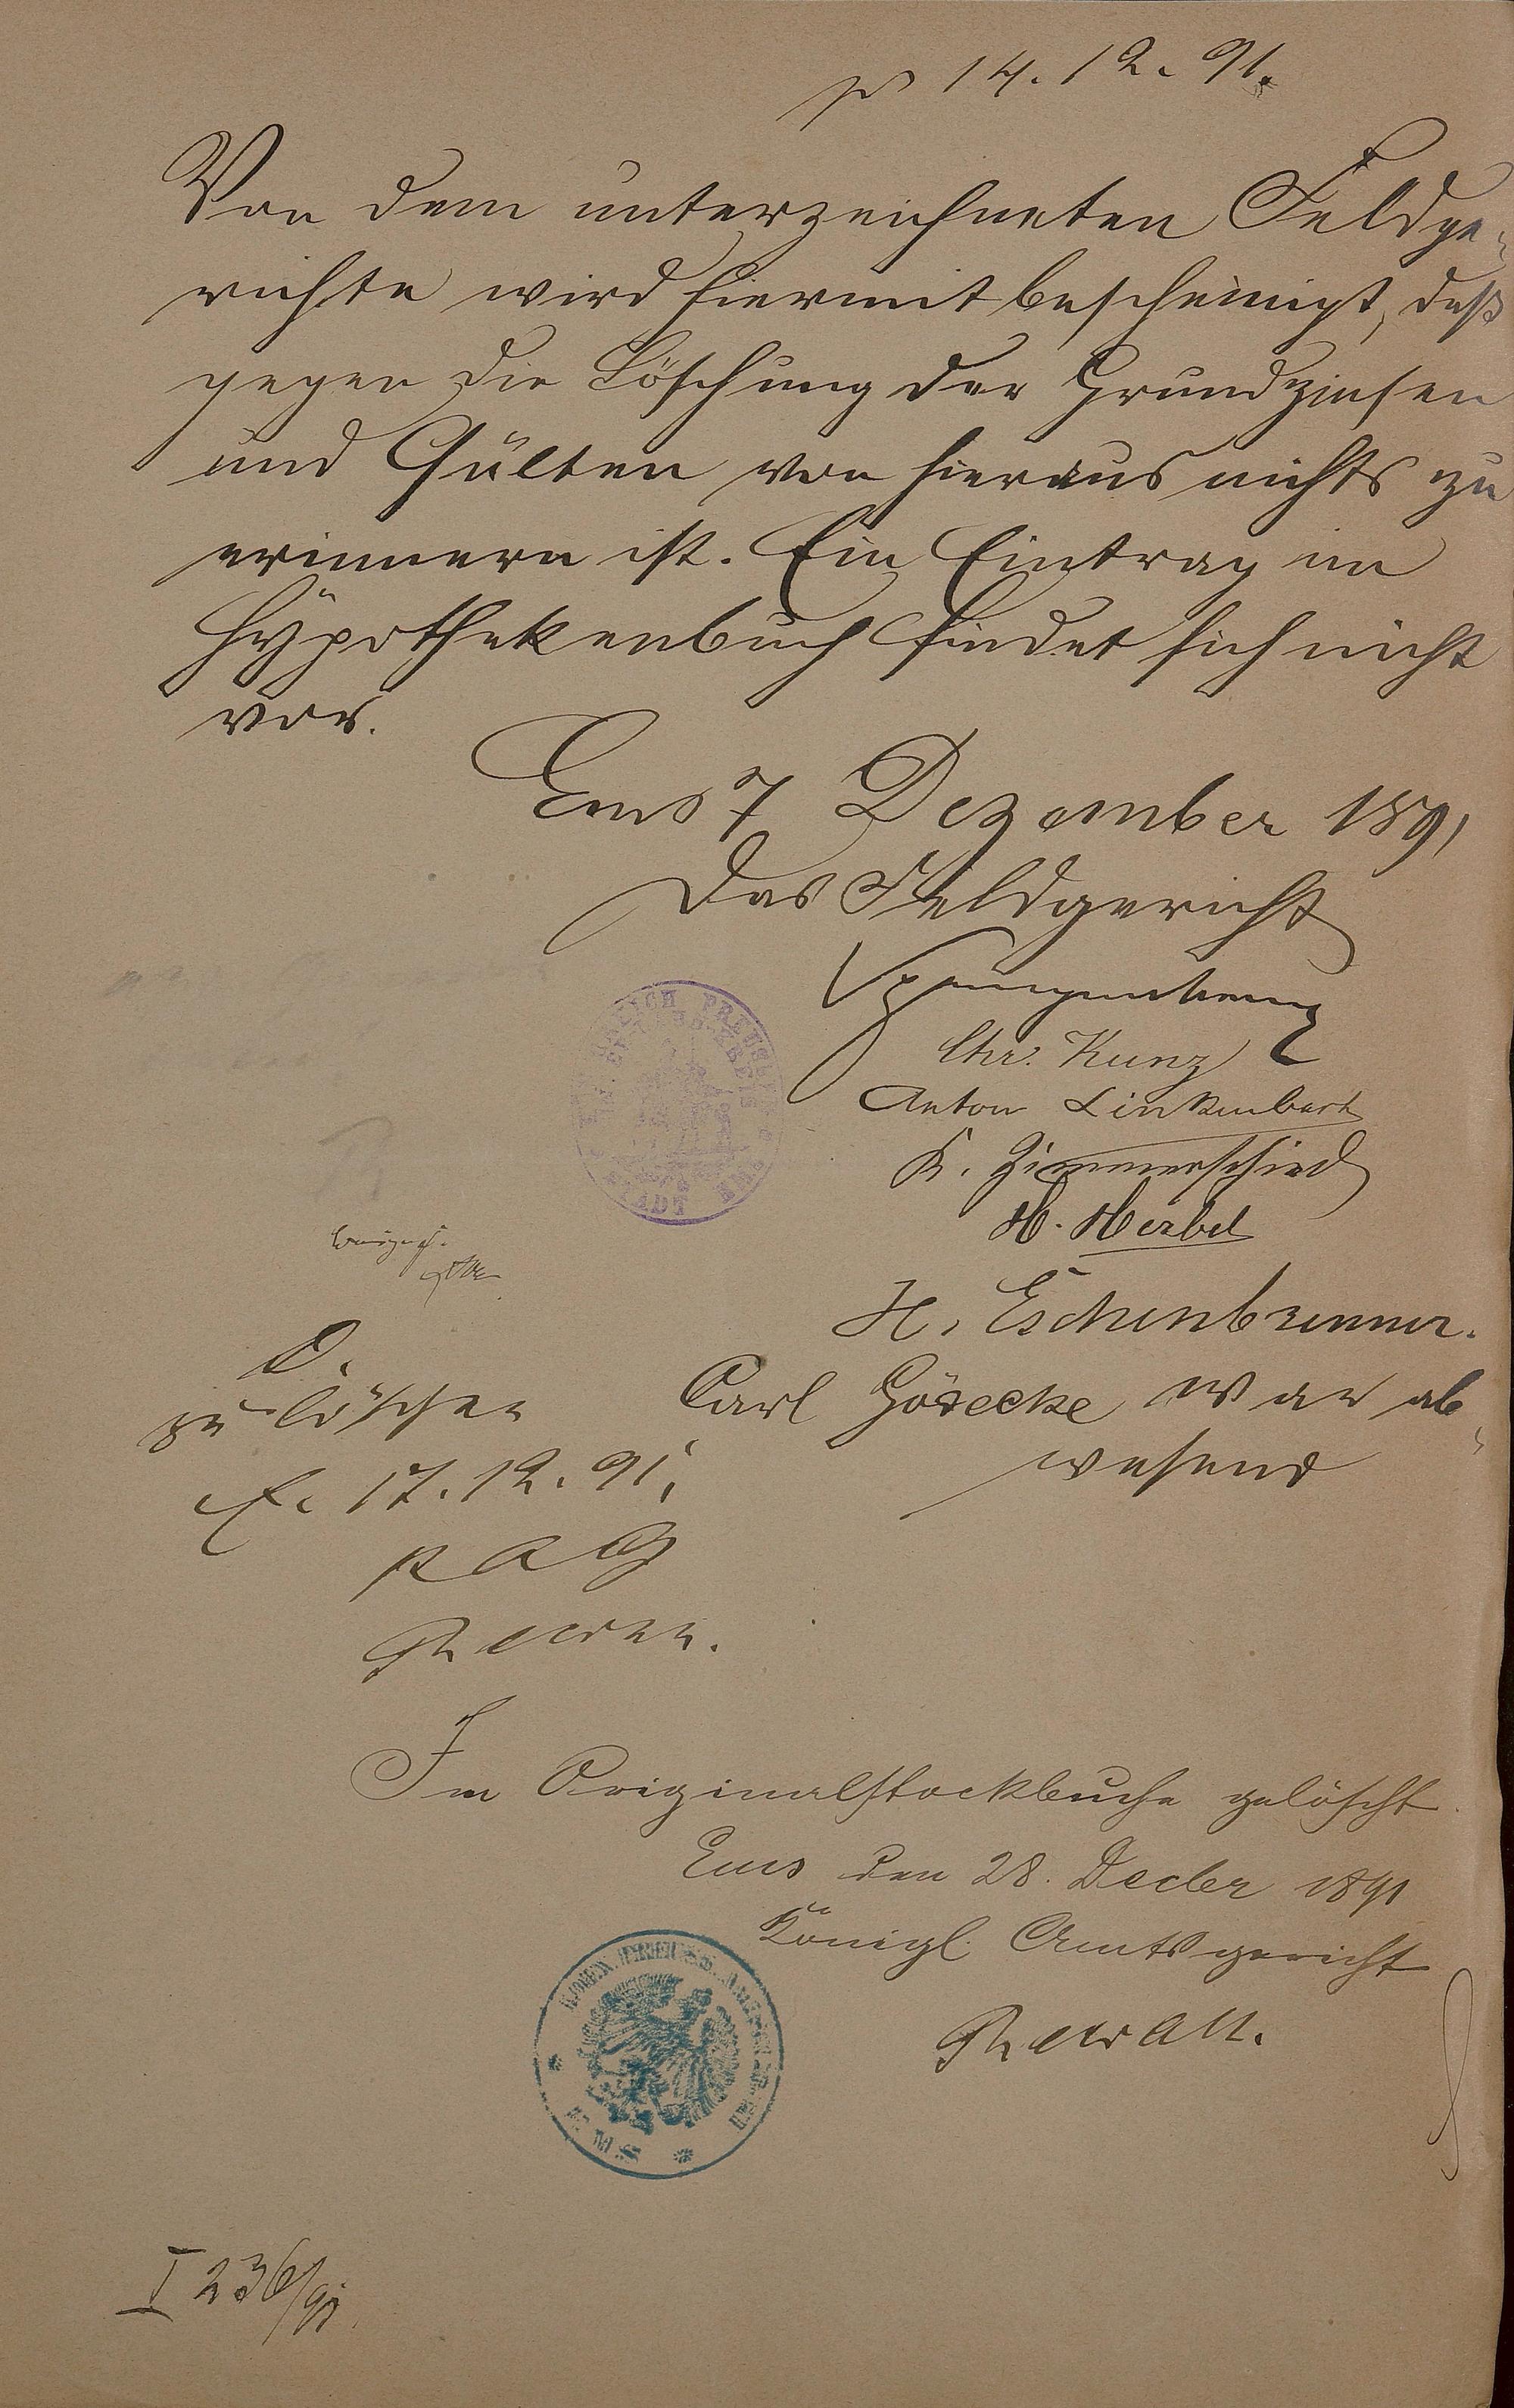 14. 12. 91.
Von dem unterzeichneten Feldge-
richte wird hiermit bescheinigt, daß
gegen die Löschung der Grundzinsen
und Gülten von hieraus nichts zu
erinnern ist. Ein Eintrag im
Hypothekenbuch findet sich nicht
vor.
Ems 7 Dezember 1891
Das Feldgericht
Spangenberg
Chr. Kunz
Anton Linkenbach
K. Zimmerschied
H. Herbel
H. Eschenbrenner.
Carl Gödecke war ab-
wesend
zu löschen
E. 17. 12. 91.
K A G
Im Originalstockbuche gelöscht.
Ems den 28. Decbr 1891
Königl. Amtsgericht
KOEN. PREUSS. AMTSGERICHT
EMS
I 236/91.